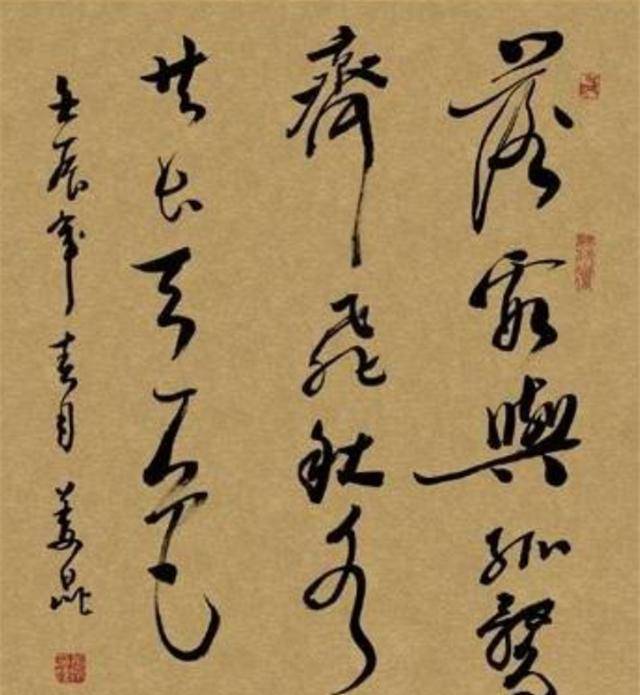 落霞與孤鶩
齊飛秋水
共長天一色
壬辰年春月 姜